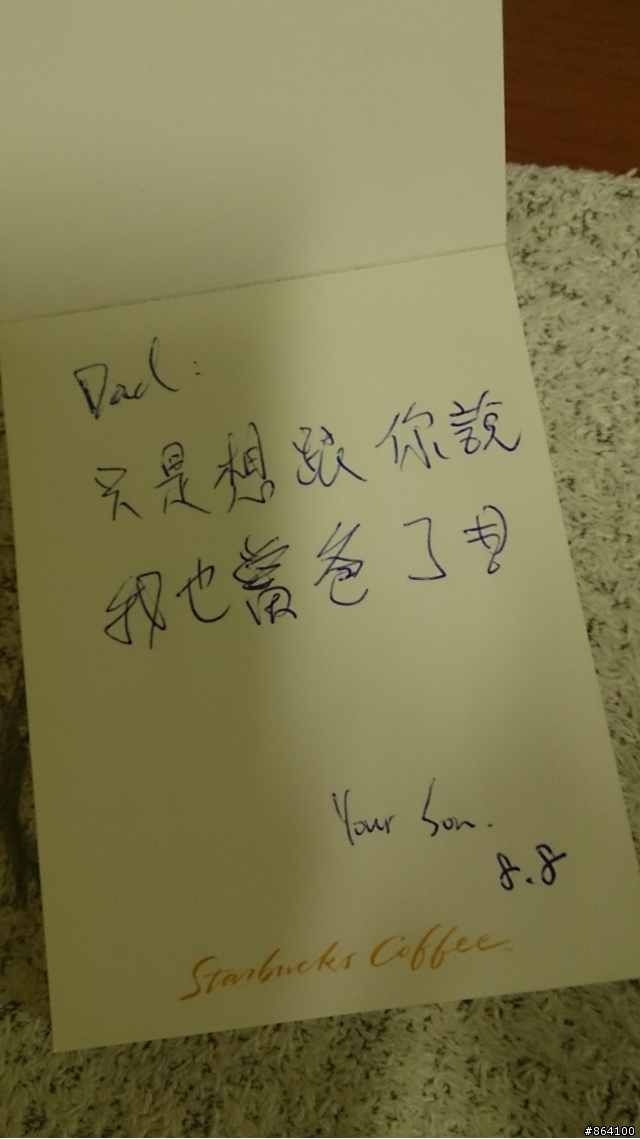 Dad:
只是想跟你說
我也當爸了
Your Son.
8.8
Starbucks Coffee
#864100